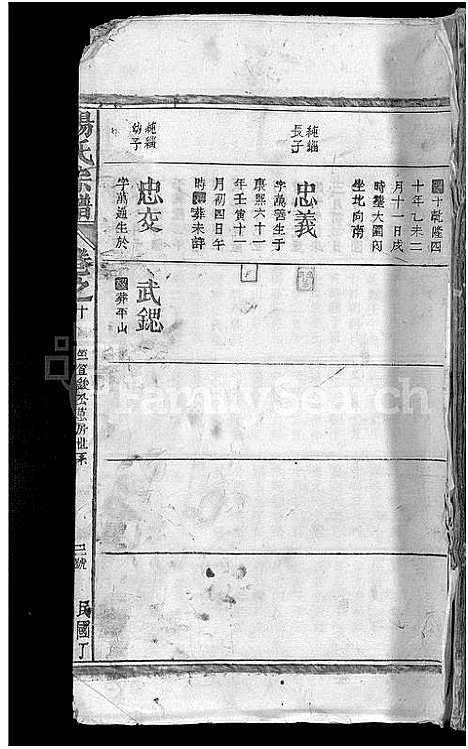 十乾隆四
十年乙未二
月十一日戌
時塟大圍內
坐北向南
純緇
長子
忠義
字萬善生于
康熙六十一
年壬寅十二
月初四日午
時 葬未詳
純緇
幼子
忠交
字萬通生於
武鍶
葬平山
楊氏宗譜
卷之十
三號
民國丁
FamilySearch